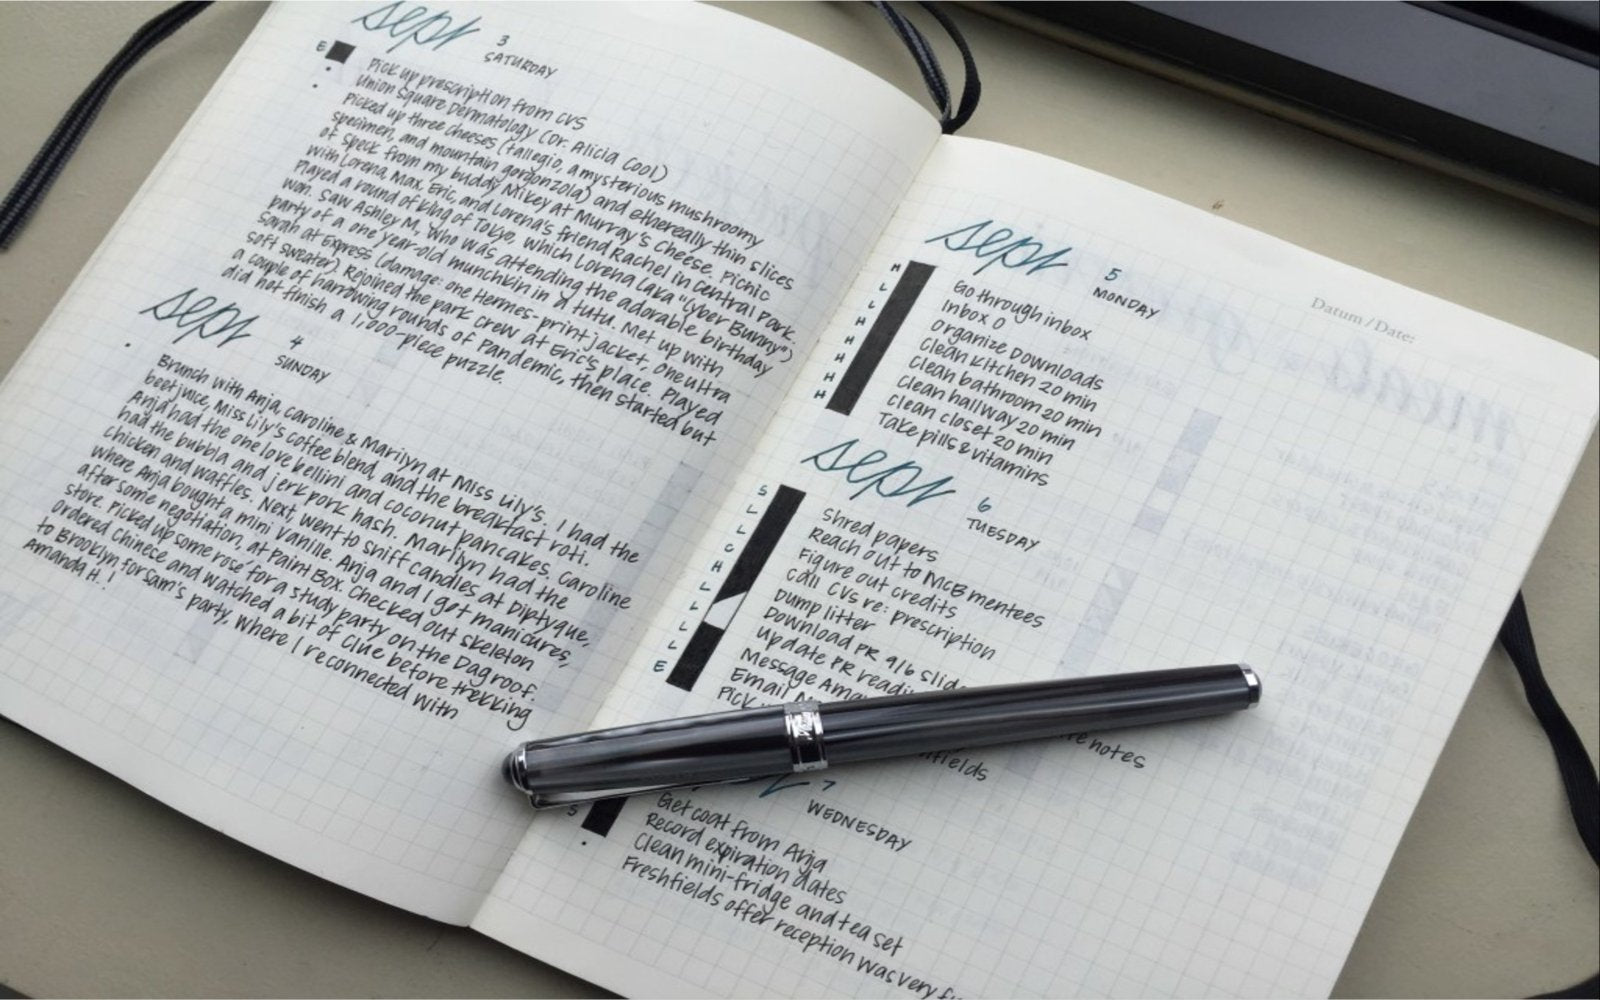 sept 3
SATURDAY
E
Pick up prescription from CVS
Union Square Dermatology (Dr. Alicia Cool)
Picked up three cheeses (tallegio, a mysterious mushroomy
specimen, and mountain gorgonzola) and ethereally thin slices
of speck from my buddy Mikey at Murray's Cheese. Picnic
with Lorena, Max, Eric, and Lorena's friend Rachel in Central Park.
Played a round of King of Tokyo, which Lorena (aka "Cyber Bunny")
won. Saw Ashley M, who was attending the adorable birthday
party of a one year-old munchkin in a tutu. Met up with
Sarah at Express (damage: one Hermes-print jacket, one ultra
soft sweater). Rejoined the park crew at Eric's place. Played
a couple of harrowing rounds of Pandemic, then started but
did not finish a 1,000-piece puzzle.
sept 4
SUNDAY
Brunch with Anja, Caroline & Marilyn at Miss Lily's. I had the
beet juice, Miss Lily's coffee blend, and the breakfast roti.
Anja had the one love bellini and coconut pancakes, Caroline
had the bubbla and jerk pork hash. Marilyn had the
chicken and waffles. Next, went to sniff candles at Diptyque,
where Anja bought a mini Vanille. Anja and I got manicures,
after some negotiation, at Paint Box. Checked out skeleton
store. Picked up some rosé for a study party on the Dag roof.
Ordered Chinese and watched a bit of Clue before trekking
to Brooklyn for Sam's party, where I reconnected with
Amanda H. !
Datum / Date:
sept 5
MONDAY
H Go through inbox
L Inbox 0
L Organize Downloads
H Clean kitchen 20 min
H Clean bathroom 20 min
H Clean hallway 20 min
H Clean closet 20 min
H Take pills & vitamins
sept 6
TUESDAY
S Shred papers
L Reach out to MCB mentees
L Figure out credits
C Call CVS re: prescription
H Dump litter
L Download PR 9/6 slid
L Update PR readi
L Message Ama
L Email
E Pick
re notes
fields
7
WEDNESDAY
Get coat from Anja
S Record expiration dates
Clean mini-fridge and tea set
Freshfields offer reception was very